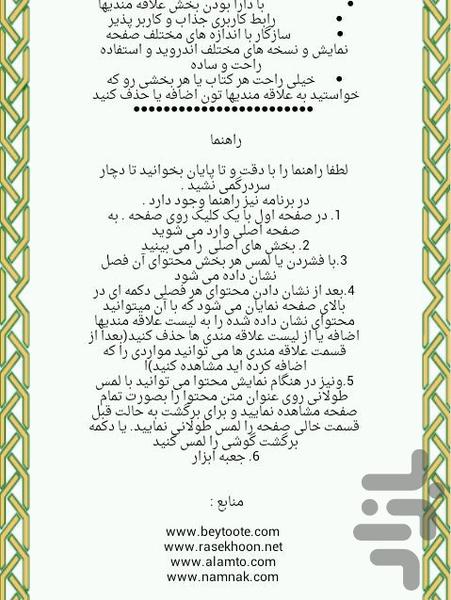 با دارا بودن بخش علاقه مندیها
• رابط کاربری جذاب و کاربر پذیر
• سازگار با اندازه های مختلف صفحه
نمایش و نسخه های مختلف اندروید و استفاده
راحت و ساده
• خیلی راحت هر کتاب یا هر بخشی رو که
خواستید به علاقه مندیها تون اضافه یا حذف کنید
••••••••••••••••••••••••
راهنما
لطفا راهنما را با دقت و تا پایان بخوانید تا دچار
سردرگمی نشید .
در برنامه نیز راهنما وجود دارد .
1. در صفحه اول با یک کلیک روی صفحه . به
صفحه اصلی وارد می شوید
2. بخش های اصلی را می بینید
3.با فشردن یا لمس هر بخش محتوای آن فصل
نشان داده می شود
4.بعد از نشان دادن محتوای هر فصلی دکمه ای در
بالای صفحه نمایان می شود که با آن میتوانید
محتوای نشان داده شده را به لیست علاقه مندیها
اضافه یا از لیست علاقه مندی ها حذف کنید(بعدا از
قسمت علاقه مندی ها می توانید مواردی را که
اضافه کرده اید مشاهده کنید)ا
5.ونیز در هنگام نمایش محتوا می توانید با لمس
طولانی روی عنوان متن محتوا را بصورت تمام
صفحه مشاهده نمایید و برای برگشت به حالت قبل
قسمت خالی صفحه را لمس طولانی نمایید. یا دکمه
برگشت گوشی را لمس کنید
6. جعبه ابزار
منابع :
www.beytoote.com
www.rasekhoon.net
www.alamto.com
www.namnak.com
بازار